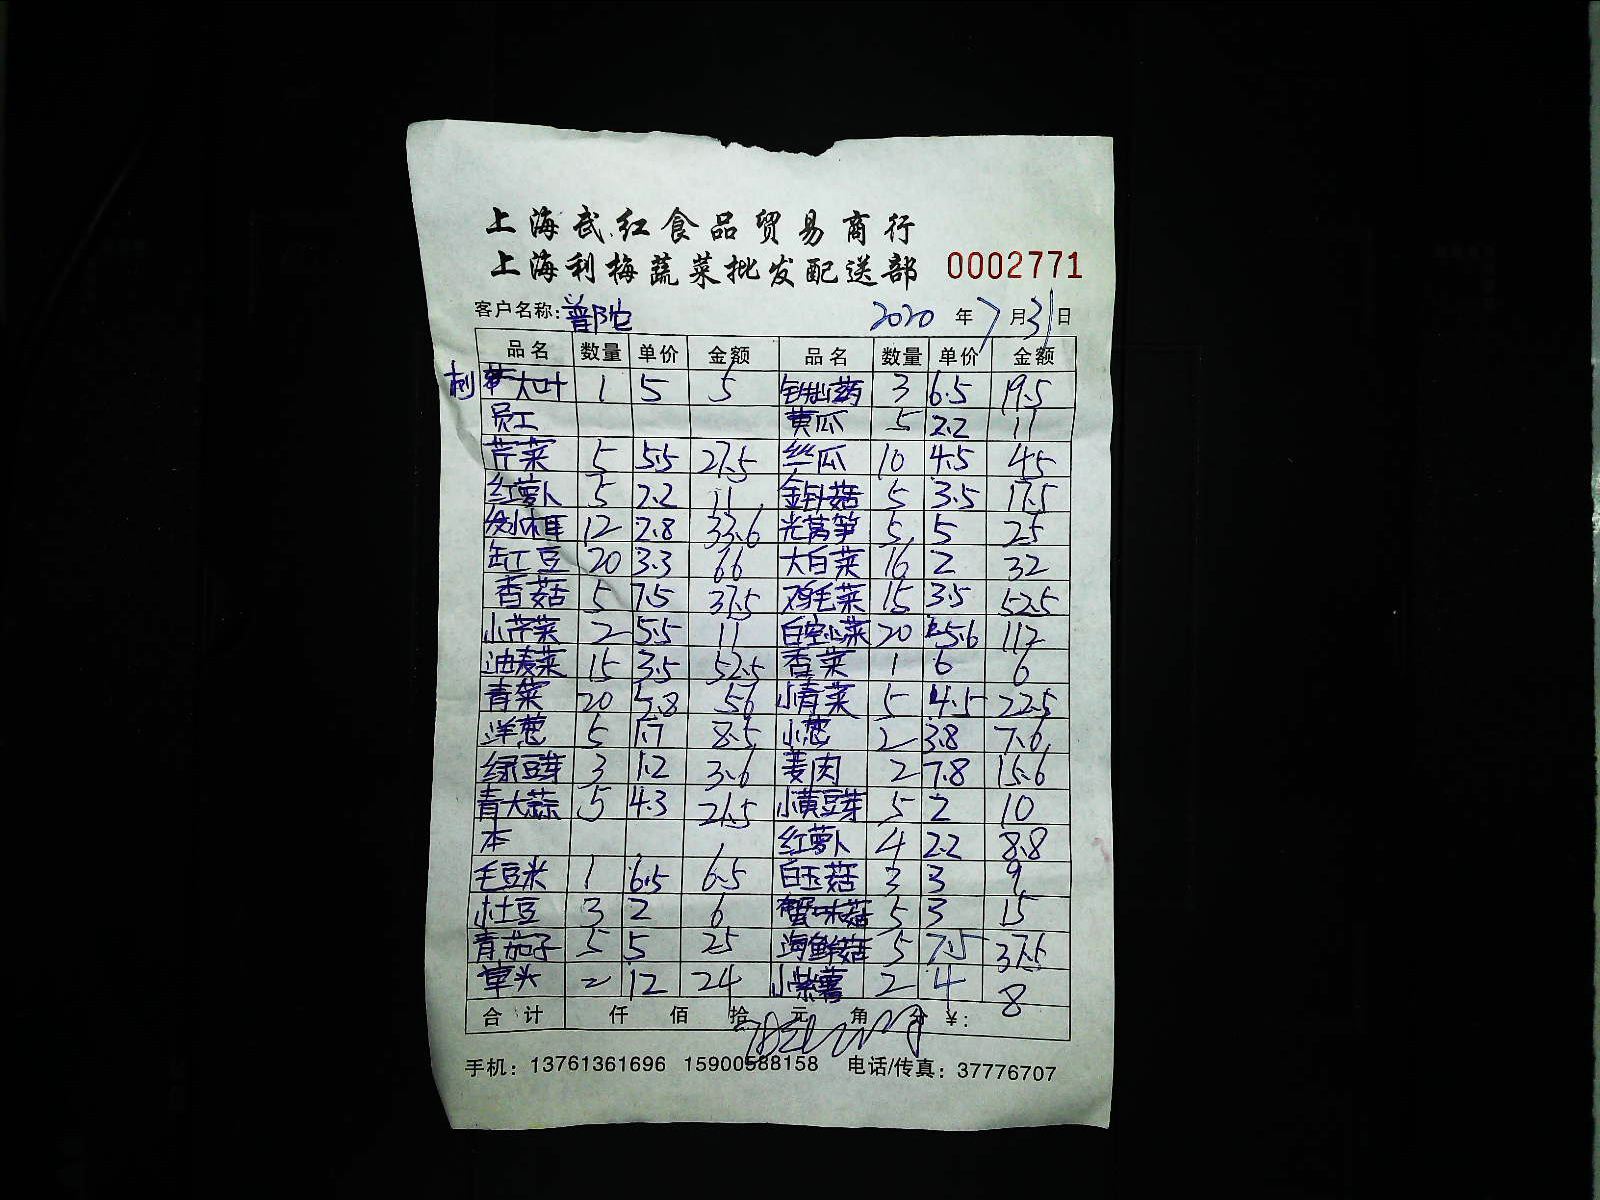 上海武红食品贸易商行
上海利梅蔬菜批发配送部 0002771
客户名称:普陀 2020 年 7 月 31 日
品名 数量 单价 金额 品名 数量 单价 金额
大叶 1 5 5 铁山药 3 6.5 19.5
员工 黄瓜 5 2.2 11
芹菜 5 5.5 27.5 丝瓜 10 4.5 45
红萝卜 5 2.2 11 金针菇 5 3.5 17.5
水木耳 12 2.8 33.6 光莴笋 5 5 25
缸豆 20 3.3 66 大白菜 16 2 32
香菇 5 7.5 37.5 鸡毛菜 15 3.5 52.5
小芹菜 2 5.5 11 白空心菜 20 5.6 112
油麦菜 15 3.5 52.5 香菜 1 6 6
青菜 20 2.8 56 小青菜 5 4.5 22.5
洋葱 5 1.7 8.5 小葱 2 3.8 7.6
绿豆芽 3 1.2 3.6 姜肉 2 7.8 15.6
青大蒜 5 4.3 21.5 小黄豆芽 5 2 10
本 红萝卜 4 2.2 8.8
毛豆米 1 6.5 6.5 白玉菇 3 3 9
小土豆 3 2 6 蟹味菇 5 3 15
青茄子 5 5 25 海鲜菇 5 7.5 37.5
草头 2 12 24 小紫薯 2 4 8
合计 仟 佰 拾 元 角 分 ¥:
手机：13761361696 15900588158 电话/传真：37776707